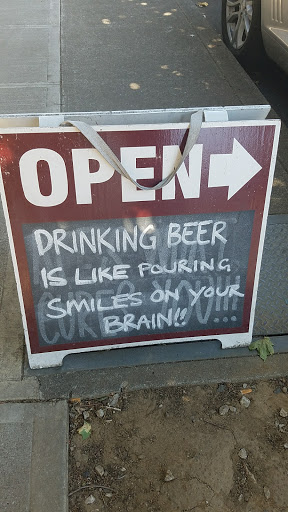 OPEN
DRINKING BEER
IS LIKE POURING
SMILES ON YOUR
BRAIN!!